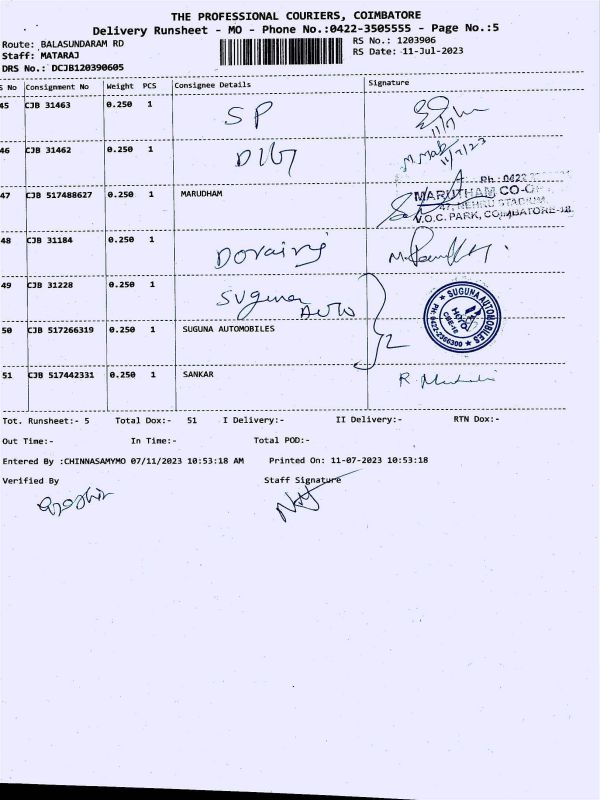 THE PROFESSIONAL COURIERS, COIMBATORE
Delivery Runsheet - MO - Phone No.:0422-3505555 - Page No.:5
Route: BALASUNDARAM RD
RS No.: 1203906
Staff: MATARAJ
RS Date: 11-Jul-2023
DRS No.: DCJB120390605
S No Consignment No Weight PCS Consignee Details Signature
45 CJB 31463 0.250 1 SP
11/7
46 CJB 31462 0.250 1
11/7/23
47 CJB 517488627 0.250 1 MARUDHAM
Ph: 0422
MARUTHAM CO-OP
47, NEHRU STADIUM,
V.O.C. PARK, COIMBATORE-18.
48 CJB 31184 0.250 1 Dorairaj
49 CJB 31228 0.250 1 Suguna Auto
50 CJB 517266319 0.250 1 SUGUNA AUTOMOBILES 2
SUGUNA AUTOMOBILES
PH: 0422-2366300
CBE-18
51 CJB 517442331 0.250 1 SANKAR
Tot. Runsheet:- 5 Total Dox:- 51 I Delivery:- II Delivery:- RTN Dox:-
Out Time:- In Time:- Total POD:-
Entered By :CHINNASAMYMO 07/11/2023 10:53:18 AM Printed On: 11-07-2023 10:53:18
Verified By Staff Signature